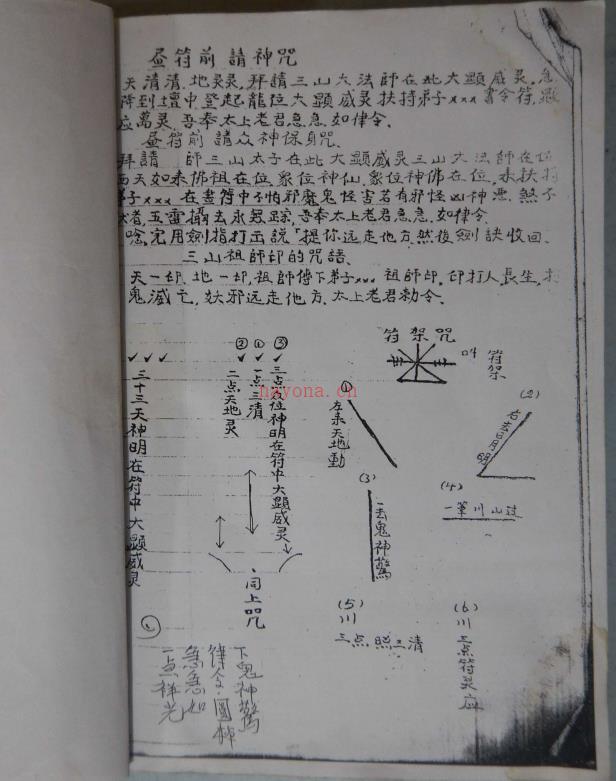 昼符前請神咒
天清清.地灵灵,拜請三山大法師在此大顯威灵.急
降到壇中登起龍位大顯威灵扶持弟子xxx書令符,
应萬灵.吾奉太上老君急急.如律令.
昼符前請众神保身咒.
拜請 師三山太子在此大顯威灵三山大法師在位
西天如来佛祖在位.象位神仙.象位神佛在位.来扶持
弟子xxx在畫符中不怕邪魔鬼怪害若有邪怪凶神悪.煞不
者,五雷攝去永無踪.吾奉太上老君急急.如律令.
唸完用劍指打出説「提你远走他方.然後劍訣收回.
三山祖師印的咒語.
天一印.地一印,祖師傅下弟子xxx祖師印.印打人長生,打
鬼滅亡,妖邪远走他方.太上老君勅令.
符架咒
叫符架
② ① ③
三点众位神明在符中大顯威灵
一点三清
二点天地灵
三十三天神明在符中大顯威灵
同上咒
(1)
左来天地動
(2)
右去日月明
(3)
一去鬼神驚
(4)
一筆川山过
(5)
川
三点照三清
(6)
川
三点符灵应
下鬼神驚
律令.圓
急急如
一点祥光
nayona.cn